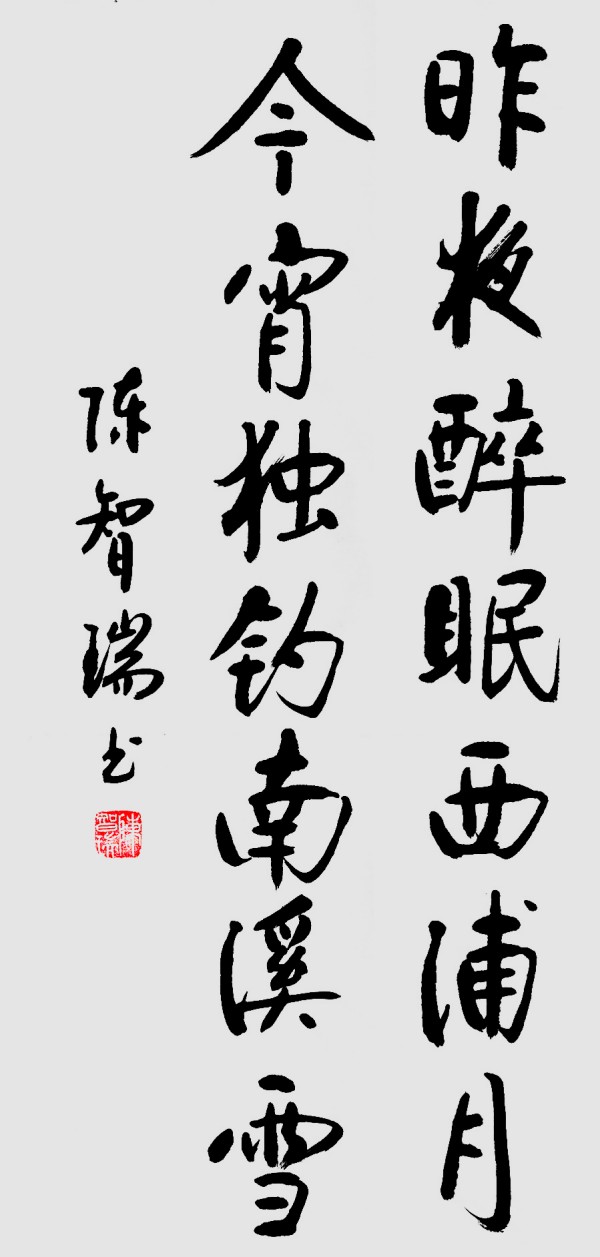 昨夜醉眠西浦月
今宵独钓南溪雪
陈智瑞书